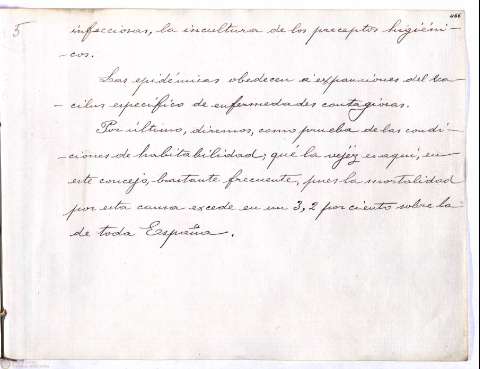 466
5
infecciosas, la incultura de los preceptos higiéni-
-cos.
Las epidémicas obedecen a expansiones del ba-
-cilus específico de enfermedades contagiosas.
Por último, diremos, como prueba de las condi-
-ciones de habitabilidad; qué la vejéz es aquí, en
este concejo, bastante frecuente, pues la mortalidad
por esta causa excede en un 3,2 por ciento sobre la
de toda España.